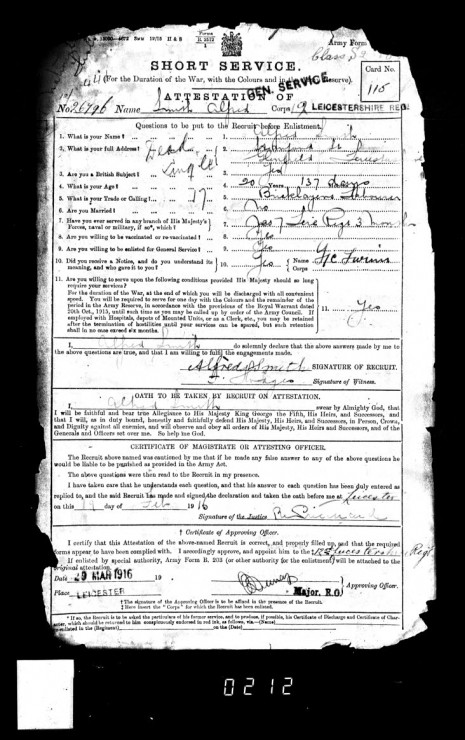 Army Form
Class
SHORT SERVICE.
(For the Duration of the War, with the Colours and in the Army Reserve).
GEN. SERVICE
Card No.
115
ATTESTATION OF
No. 26796 Name Smith Alfred Corps 19 LEICESTERSHIRE REG
Questions to be put to the Recruit before Enlistment.
1. What is your Name? 1. Alfred Smith
2. What is your full Address? 2.
3. Are you a British Subject? 3. Yes
4. What is your Age? 4. 20 Years 137 days
5. What is your Trade or Calling? 5. Bricklayers
6. Are you Married? 6. No
7. Have you ever served in any branch of His Majesty's
Forces, naval or military, if so*, which? 7. 3
8. Are you willing to be vaccinated or re-vaccinated? 8. Yes
9. Are you willing to be enlisted for General Service? 9. Yes
10. Did you receive a Notice, and do you understand its
meaning, and who gave it to you? 10. Yes Name
Corps
Single
11. Are you willing to serve upon the following conditions provided His Majesty should so long
require your services?
For the duration of the War, at the end of which you will be discharged with all convenient
speed. You will be required to serve for one day with the Colours and the remainder of the
period in the Army Reserve, in accordance with the provisions of the Royal Warrant dated
20th Oct., 1915, until such time as you may be called up by order of the Army Council. If
employed with Hospitals, depots of Mounted Units, or as a Clerk, etc., you may be retained
after the termination of hostilities until your services can be spared, but such retention
shall in no case exceed six months. 11. Yes
I, Alfred Smith do solemnly declare that the above answers made by me to
the above questions are true, and that I am willing to fulfil the engagements made.
Alfred Smith SIGNATURE OF RECRUIT.
Signature of Witness.
OATH TO BE TAKEN BY RECRUIT ON ATTESTATION.
I, Alfred Smith swear by Almighty God, that
I will be faithful and bear true Allegiance to His Majesty King George the Fifth, His Heirs, and Successors, and
that I will, as in duty bound, honestly and faithfully defend His Majesty, His Heirs, and Successors, in Person, Crown,
and Dignity against all enemies, and will observe and obey all orders of His Majesty, His Heirs and Successors, and of the
Generals and Officers set over me. So help me God.
CERTIFICATE OF MAGISTRATE OR ATTESTING OFFICER.
The Recruit above named was cautioned by me that if he made any false answer to any of the above questions he
would be liable to be punished as provided in the Army Act.
The above questions were then read to the Recruit in my presence.
I have taken care that he understands each question, and that his answer to each question has been duly entered as
replied to, and the said Recruit has made and signed the declaration and taken the oath before me at Leicester
on this day of Feb 1916
Signature of the Justice
† Certificate of Approving Officer.
I certify that this Attestation of the above-named Recruit is correct, and properly filled up, and that the required
forms appear to have been complied with. I accordingly approve, and appoint him to the ‡ Leicestershire Regt
If enlisted by special authority, Army Form B. 203 (or other authority for the enlistment) will be attached to the
original attestation.
Date 29 MAR 1916 19 .
Place LEICESTER
Major. R.O.
Approving Officer.
† The signature of the Approving Officer is to be affixed in the presence of the Recruit.
‡ Here insert the "Corps" for which the Recruit has been enlisted.
* If so, the Recruit is to be asked the particulars of his former service, and to produce, if possible, his Certificate of Discharge and Certificate of Char-
acter, which should be returned to him conspicuously endorsed in red ink, as follows, viz.—(Name)
re-enlisted in the (Regiment) on the (Date)
0212